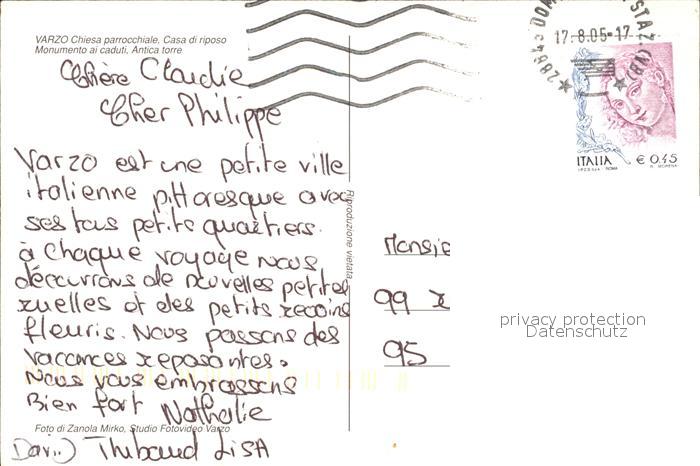 VARZO Chiesa parrocchiale, Casa di riposo
Monumento ai caduti, Antica torre
Chère Claudie
Cher Philippe
Varzo est une petite ville
italienne pittoresque avec
ses tous petits quartiers.
à chaque voyage nous
découvrons de nouvelles petites
ruelles et des petits recoins
fleuris. Nous passons des
vacances reposantes.
Nous vous embrassons
Bien fort Nathalie
David Thibaud LISA
Foto di Zanola Mirko, Studio Fotovideo Varzo
Riproduzione vietata
17.8.05-17
ITALIA € 0,45
I.P.Z.S. S.p.A. - ROMA
Monsie
99 r
95
privacy protection
Datenschutz